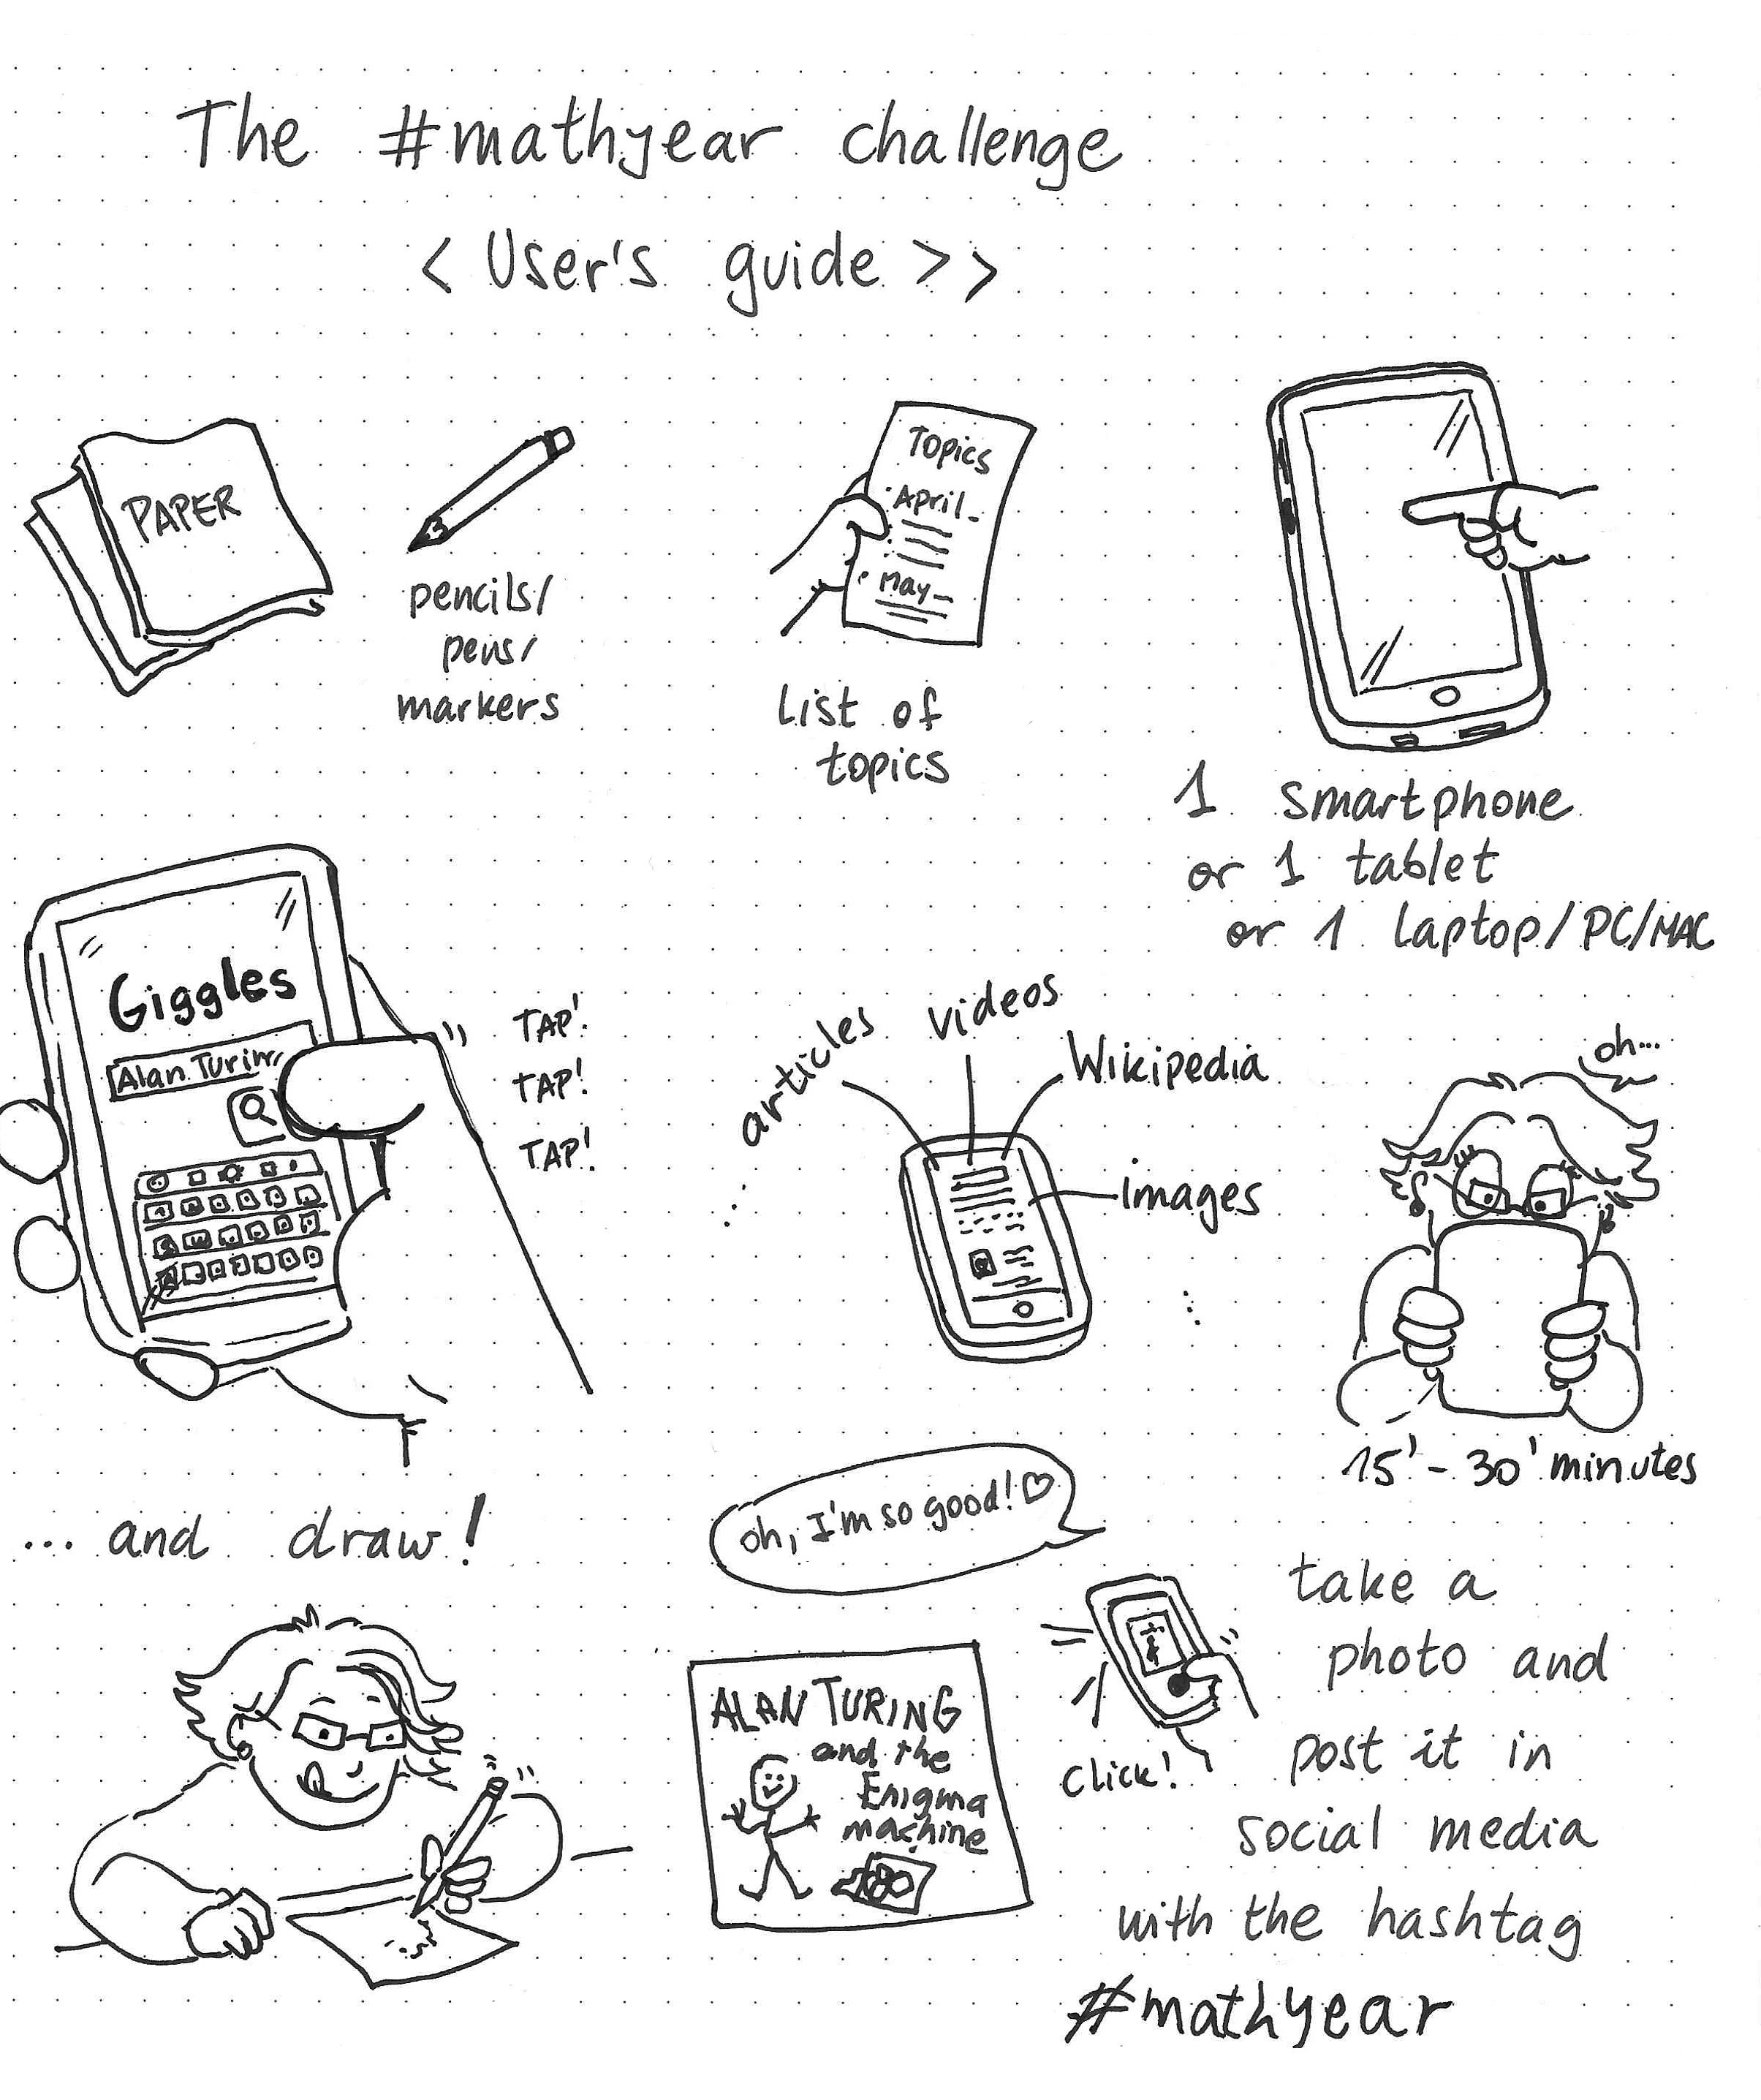 The #mathyear challenge
< User's guide >>
PAPER
pencils/
pens/
markers
Topics
· April
· May
List of
topics
1 smartphone
or 1 tablet
or 1 laptop/PC/MAC
Giggles
Alan Turin
TAP!
TAP!
TAP!
... articles
videos
Wikipedia
images
...
oh...
15'-30' minutes
... and draw!
oh, I'm so good! ♡
ALAN TURING
and the
Enigma
machine
click!
take a
photo and
post it in
social media
with the hashtag
#mathyear